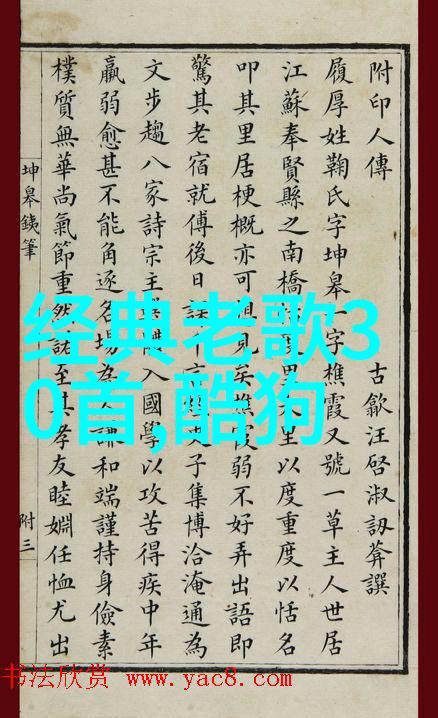 附印人傳 古歙汪啓淑訒葊譔
履厚姓鞠氏字坤皋一字樵霞又號一草主人世居
江蘇奉賢縣之南橋度里里以度重度以恬名
叩其里居梗概亦可見矣樵霞弱不好弄出語即
驚其老宿就傅後日誦子集博洽淹通為
文步趨八家詩宗主入國學以攻苦得疾中年
羸弱愈甚不能角逐名場為謙和端謹持身儉素
樸質無華尚氣節重然諾至其孝友睦婣任恤尤出
坤皋銕筆
附三
经典老歌3
0首,酷狗
书法欣赏 www.yac8.com